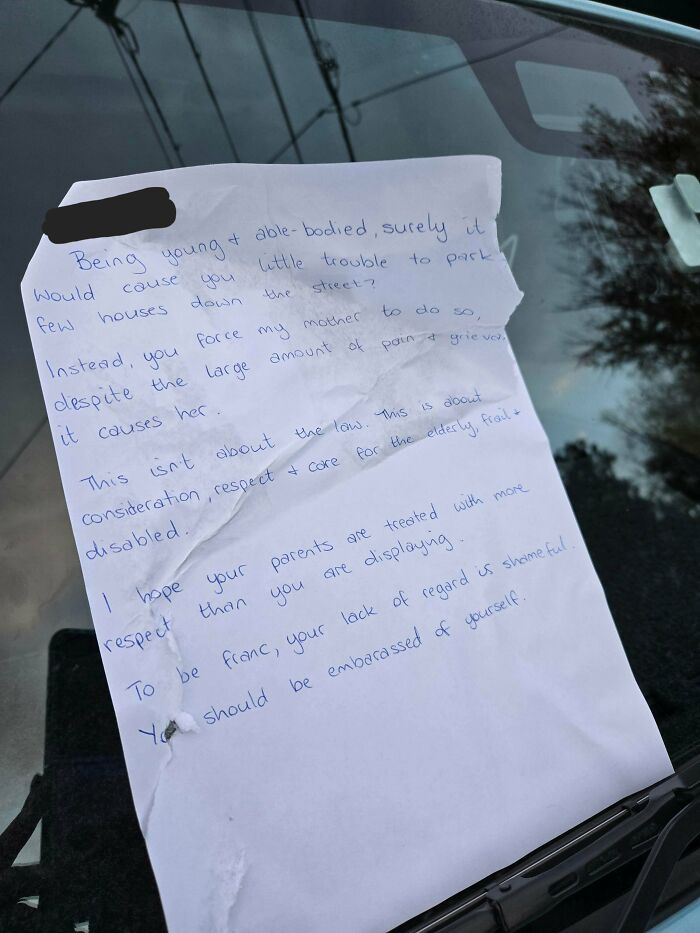 Being young + able-bodied, surely it
would cause you little trouble to park
few houses down the street?
Instead, you force my mother to do so,
despite the large amount of pain +
it causes her.
This isn't about the law. This is about
consideration, respect + care for the elderly, frail +
disabled.
I hope your parents are treated with more
respect than you are displaying.
To be franc, your lack of regard is shameful.
should be embarassed of yourself.